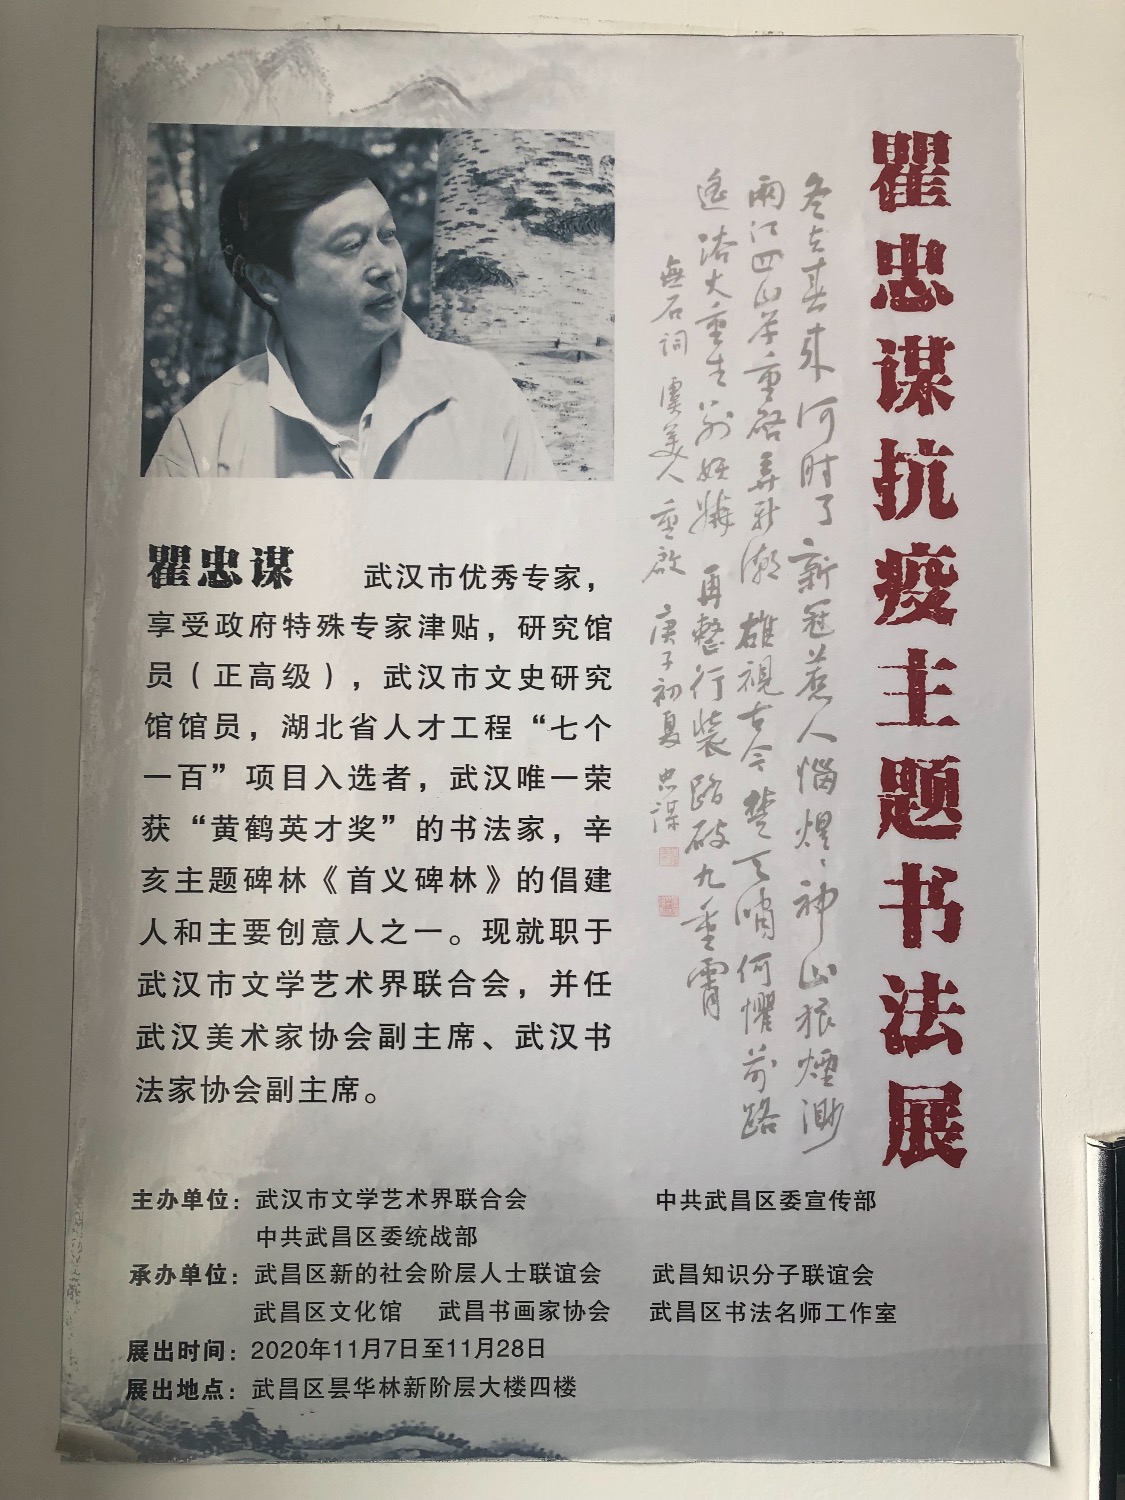 瞿忠谋抗疫主题书法展
冬去春来何时了新冠惹人恼煌煌神山狼煙渺
兩江四岸重啓弄新潮雄視古今楚天嘯何懼前路
遙浴火重生别妖嬈再整行裝踏破九重霄
無石詞虞美人重啟庚子初夏忠谋
瞿忠谋 武汉市优秀专家，
享受政府特殊专家津贴，研究馆
员（正高级），武汉市文史研究
馆馆员，湖北省人才工程“七个
一百”项目入选者，武汉唯一荣
获“黄鹤英才奖”的书法家，辛
亥主题碑林《首义碑林》的倡建
人和主要创意人之一。现就职于
武汉市文学艺术界联合会，并任
武汉美术家协会副主席、武汉书
法家协会副主席。
主办单位：武汉市文学艺术界联合会 中共武昌区委宣传部
中共武昌区委统战部
承办单位：武昌区新的社会阶层人士联谊会 武昌知识分子联谊会
武昌区文化馆 武昌书画家协会 武昌区书法名师工作室
展出时间：2020年11月7日至11月28日
展出地点：武昌区昙华林新阶层大楼四楼